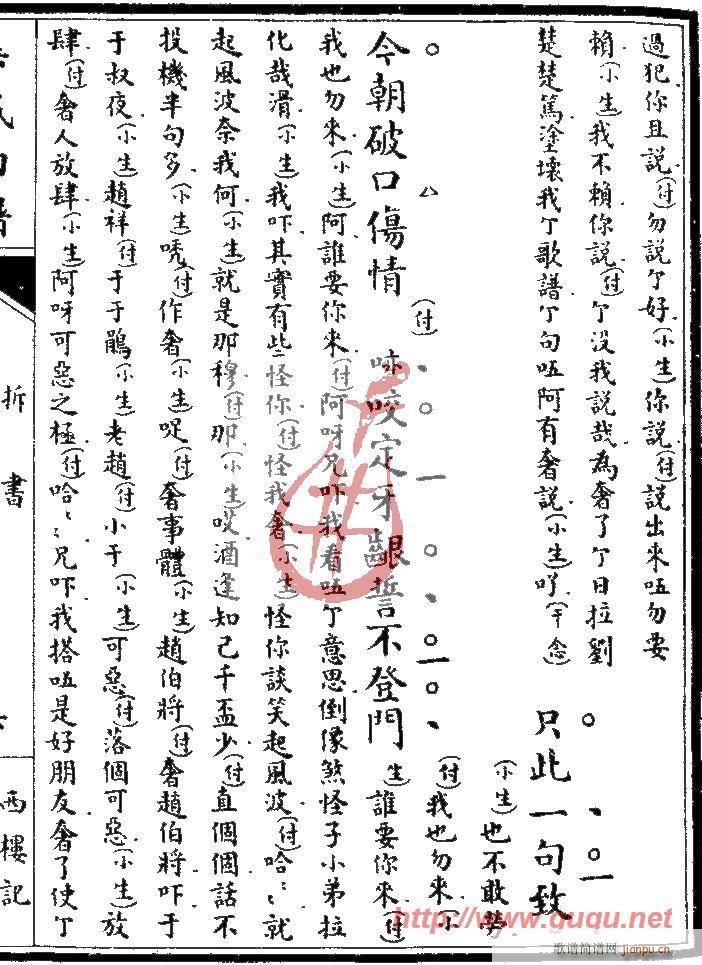 過犯你且説(付)勿説丫好(小生)你説(付)説出來呸勿要
賴(小生)我不賴你説(付)丫没我説哉為奢了丫日拉劉
楚楚篤塗壞我丫歌譜丫句呸阿有奢説(小生)(干念)
只此一句致
(小生)也不敢勞
(付)我也勿來(小
今朝破口傷情(付)咬定牙齦誓不登門生)誰要你來(付
我也勿來(小生)阿誰要你來(付)阿呀兄吓我看呸丫意思倒像煞怪子小弟拉
化哉滑(小生)我吓其實有些怪你(付)怪我奢(小生)怪你談笑起風波(付)哈就
起風波奈我何(小生)就是那穆(付)那(小生)哎酒逢知己千盃少(付)直個個話不
投機半句多(小生)唬(付)作奢(小生)哫(付)奢事體(小生)趙伯將(付)奢趙伯將吓于
于叔夜(小生)趙祥(付)于于鵑(小生)老趙(付)小于(小生)可惡(付)落個可惡(小生)放
肆(付)奢人放肆(小生)阿呀可惡之極(付)哈兄吓我搭呸是好朋友奢了使丫
拆書
西樓記
http://www.guqu.net
歌谱简谱网
jianpu.cn